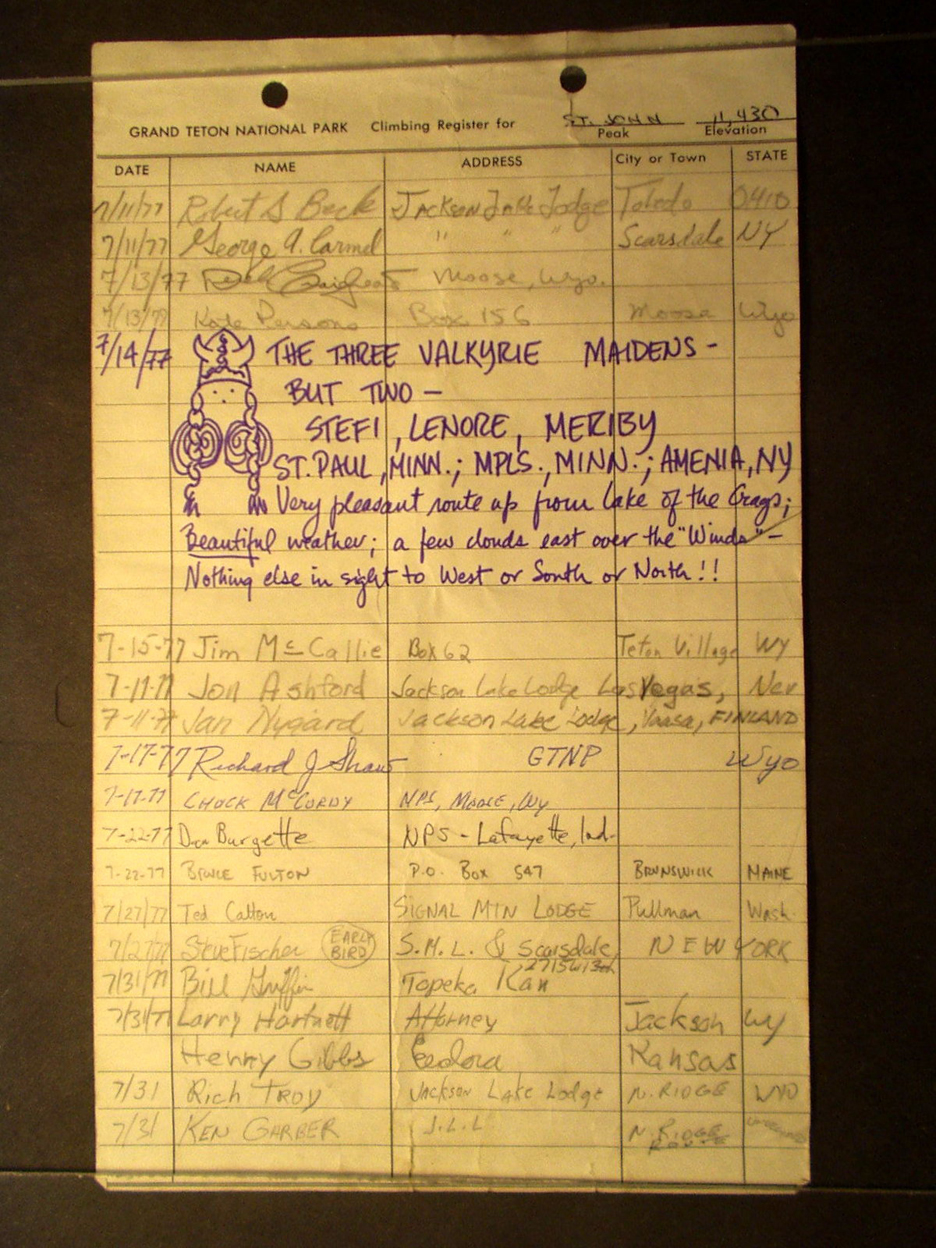 ST. JOHN 11,430
GRAND TETON NATIONAL PARK Climbing Register for Peak Elevation
DATE NAME ADDRESS City or Town STATE
7/11/77 Robert S Beck Jackson Lake Lodge Toledo OHIO
7/11/77 George A. Carmel " " " Scarsdale NY
7/13/77 Moose, Wyo.
7/13/77 Kate Persons Box 156 Moose Wyo
7/14/77 THE THREE VALKYRIE MAIDENS -
BUT TWO -
STEFI, LENORE, MERIBY
ST. PAUL, MINN.; MPLS., MINN.; AMENIA, NY
Very pleasant route up from Lake of the Crags;
Beautiful weather; a few clouds east over the "Winds" -
Nothing else in sight to West or South or North!!
7-15-77 Jim McCallie Box 62 Teton Village WY
7-17-77 Jon Ashford Jackson Lake Lodge Las Vegas, Nev
Jan Nygård Jackson Lake Lodge, Vaasa, FINLAND
7-17-77 Richard J Shaw GTNP Wyo
7-17-77 CHUCK McCURDY NPS, MOOSE, WY
7-22-77 Don Burgette NPS - Lafayette, Ind.
7-22-77 BRUCE FULTON P.O. BOX 547 BRUNSWICK MAINE
7/27/77 Ted Catton SIGNAL MTN LODGE Pullman Wash.
7/27/77 Steve Fischer EARLY BIRD S.M.L. & Scarsdale, NEW YORK
7/31/77 Bill Griffin Topeka Kan
7/31/77 Larry Hartnett Attorney Jackson WY
Henry Gibbs Eudora Kansas
7/31 Rich TROY JACKSON LAKE LODGE N. RIDGE WYO
7/31 KEN GARBER J.L.L N. RIDGE